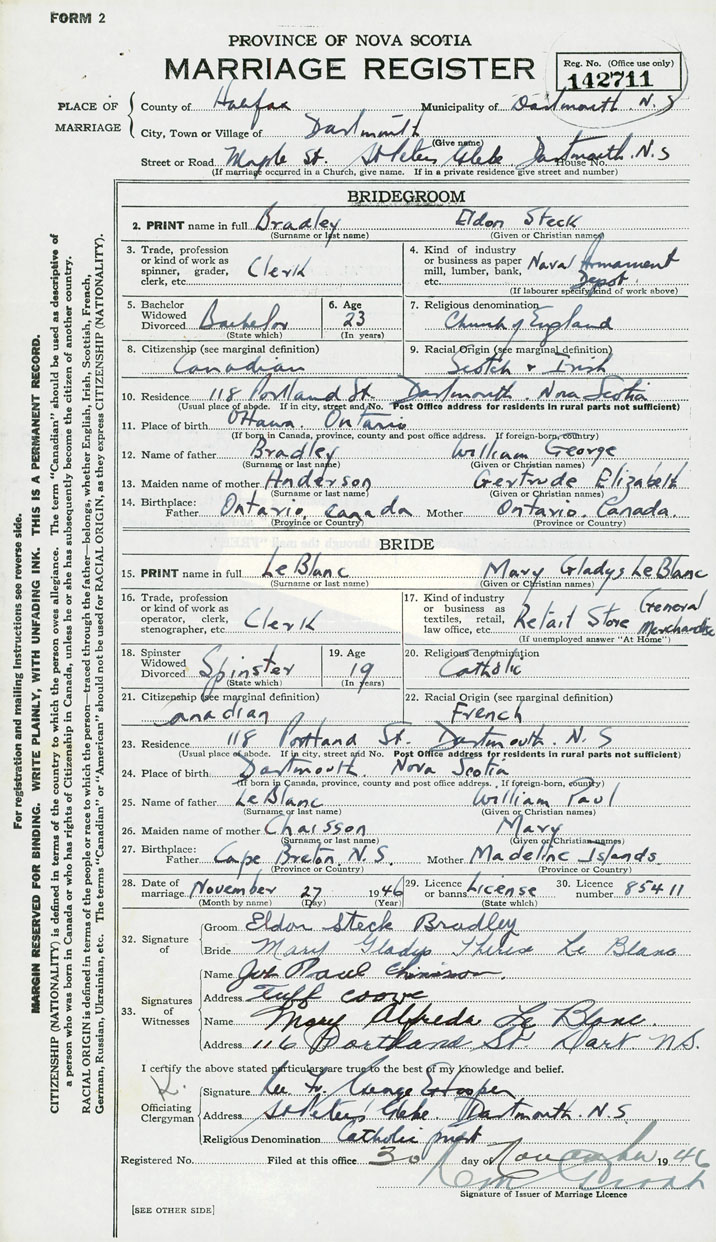 FORM 2
PROVINCE OF NOVA SCOTIA
MARRIAGE REGISTER
Reg. No. (Office use only)
142711
PLACE OF MARRIAGE
County of Halifax Municipality of Dartmouth. N.S
City, Town or Village of Dartmouth
(Give name)
Street or Road Maple St. St Peters Glebe, Dartmouth. N.S House No.
(If marriage occurred in a Church, give name. If in a private residence give street and number)
BRIDEGROOM
2. PRINT name in full Bradley Eldon Steck
(Surname or last name) (Given or Christian names)
3. Trade, profession or kind of work as spinner, grader, clerk, etc. Clerk
4. Kind of industry or business as paper mill, lumber, bank, etc. Naval Armament Depot.
(If labourer specify kind of work above)
5. Bachelor Widowed Divorced Bachelor
(State which)
6. Age 23
(In years)
7. Religious denomination
Church of England
8. Citizenship (see marginal definition)
Canadian
9. Racial Origin (see marginal definition)
Scotch & Irish
10. Residence 118 Portland St. Dartmouth. Nova Scotia
(Usual place of abode. If in city, street and No. Post Office address for residents in rural parts not sufficient)
11. Place of birth Ottawa. Ontario
(If born in Canada, province, county and post office address. If foreign-born, country)
12. Name of father Bradley William George
(Surname or last name) (Given or Christian names)
13. Maiden name of mother Anderson Gertrude Elizabeth
(Surname or last name) (Given or Christian names)
14. Birthplace: Father Ontario, Canada Mother Ontario. Canada.
(Province or Country) (Province or Country)
BRIDE
15. PRINT name in full LeBlanc Mary Gladys LeBlanc
(Surname or last name) (Given or Christian names)
16. Trade, profession or kind of work as operator, clerk, stenographer, etc. Clerk
17. Kind of industry or business as textiles, retail, law office, etc. Retail Store General Merchandise
(If unemployed answer "At Home")
18. Spinster Widowed Divorced Spinster
(State which)
19. Age 19
(In years)
20. Religious denomination
Catholic
21. Citizenship (see marginal definition)
Canadian
22. Racial Origin (see marginal definition)
French
23. Residence 118 Portland St. Dartmouth. N.S
(Usual place of abode. If in city, street and No. Post Office address for residents in rural parts not sufficient)
24. Place of birth Dartmouth. Nova Scotia
(If born in Canada, province, county and post office address. If foreign-born, country)
25. Name of father LeBlanc William Paul
(Surname or last name) (Given or Christian names)
26. Maiden name of mother Chaisson Mary
(Surname or last name) (Given or Christian names)
27. Birthplace: Father Cape Breton. N.S. Mother Madeline Islands.
(Province or Country) (Province or Country)
28. Date of marriage November 27 1946
(Month by name) (Day) (Year)
29. Licence or banns License
(State which)
30. Licence number 85411
32. Signature of
Groom Eldon Steck Bradley
Bride Mary Gladys Therese Le Blanc
33. Signatures of Witnesses
Name Paul
Address Tuff coove
Name Mary Alfreda Le Blanc.
Address 116 Portland St. Dart N.S.
I certify the above stated particulars are true to the best of my knowledge and belief.
Officiating Clergyman
Signature George
Address St Peters Glebe. Dartmouth. N.S
Religious Denomination Catholic priest
Registered No. Filed at this office 30 day of November 1946
Signature of Issuer of Marriage Licence
[SEE OTHER SIDE]
For registration and mailing instructions see reverse side.
MARGIN RESERVED FOR BINDING. WRITE PLAINLY, WITH UNFADING INK. THIS IS A PERMANENT RECORD.
CITIZENSHIP (NATIONALITY) is defined in terms of the country to which the person owes allegiance. The term "Canadian" should be used as descriptive of
a person who was born in Canada or who has rights of Citizenship in Canada, unless he or she has subsequently become the citizen of another country.
RACIAL ORIGIN is defined in terms of the people or race to which the person—traced through the father—belongs, whether English, Irish, Scottish, French,
German, Russian, Ukrainian, etc. The terms "Canadian" or "American" should not be used for RACIAL ORIGIN, as they express CITIZENSHIP (NATIONALITY).